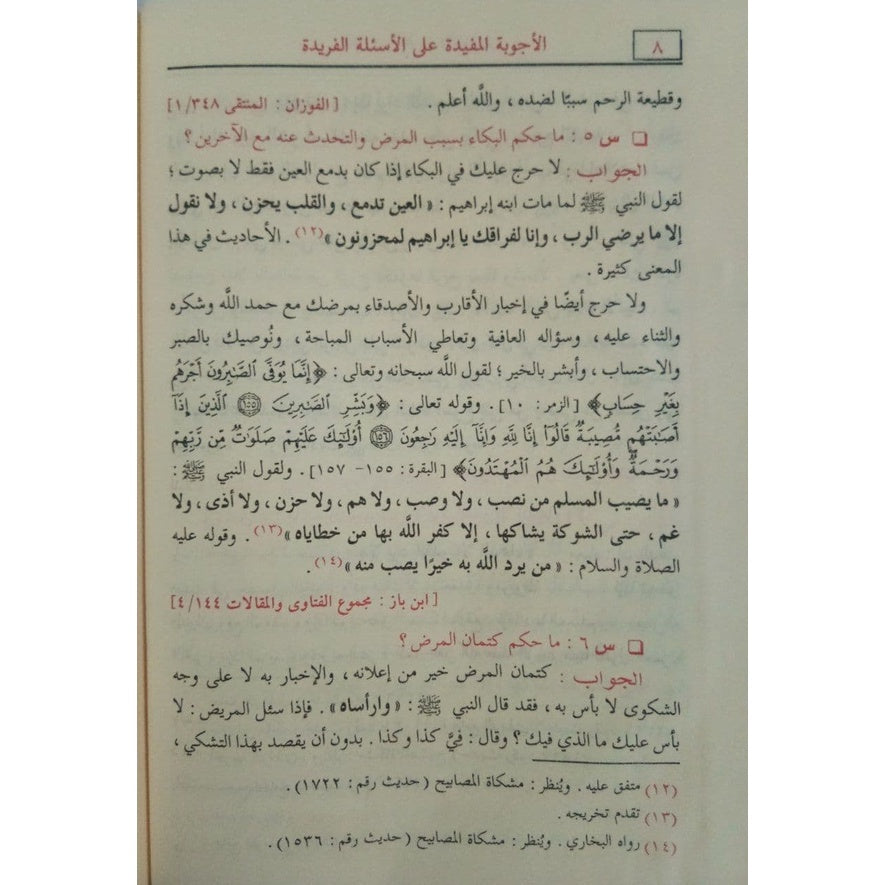 ٨
الأجوبة المفيدة على الأسئلة الفريدة
وقطيعة الرحم سببًا لضده ، والله أعلم . [ الفوزان : المنتقى ١/٣٤٨ ]
س ٥ : ما حكم البكاء بسبب المرض والتحدث عنه مع الآخرين ؟
الجواب : لا حرج عليك في البكاء إذا كان بدمع العين فقط لا بصوت ؛
لقول النبي ﷺ لما مات ابنه إبراهيم : « العين تدمع ، والقلب يحزن ، ولا نقول
إلا ما يرضي الرب ، وإنا لفراقك يا إبراهيم لمحزونون »(١٢) . الأحاديث في هذا
المعنى كثيرة .
ولا حرج أيضًا في إخبار الأقارب والأصدقاء بمرضك مع حمد الله وشكره
والثناء عليه ، وسؤاله العافية وتعاطي الأسباب المباحة ، ونُوصيك بالصبر
والاحتساب ، وأبشر بالخير ؛ لقول الله سبحانه وتعالى : ﴿ إِنَّمَا يُوَفَّى ٱلصَّٰبِرُونَ أَجْرَهُم
بِغَيْرِ حِسَابٍ﴾ [ الزمر : ١٠ ] . وقوله تعالى : ﴿وَبَشِّرِ ٱلصَّٰبِرِينَ ١٥٥ ٱلَّذِينَ إِذَآ
أَصَٰبَتْهُم مُّصِيبَةٌ قَالُوٓا۟ إِنَّا لِلَّهِ وَإِنَّآ إِلَيْهِ رَٰجِعُونَ ١٥٦ أُو۟لَٰٓئِكَ عَلَيْهِمْ صَلَوَٰتٌ مِّن رَّبِّهِمْ
وَرَحْمَةٌ وَأُو۟لَٰٓئِكَ هُمُ ٱلْمُهْتَدُونَ﴾ [ البقرة : ١٥٥- ١٥٧ ] . ولقول النبي ﷺ :
« ما يصيب المسلم من نصب ، ولا وصب ، ولا هم ، ولا حزن ، ولا أذى ، ولا
غم ، حتى الشوكة يشاكها ، إلا كفر الله بها من خطاياه »(١٣) . وقوله عليه
الصلاة والسلام : « من يرد الله به خيرًا يصب منه »(١٤) .
[ ابن باز : مجموع الفتاوى والمقالات ٤/١٤٤ ]
س ٦ : ما حكم كتمان المرض ؟
الجواب : كتمان المرض خير من إعلانه ، والإخبار به لا على وجه
الشكوى لا بأس به ، فقد قال النبي ﷺ : « وارأساه » . فإذا سئل المريض : لا
بأس عليك ما الذي فيك ؟ وقال : فِيَّ كذا وكذا . بدون أن يقصد بهذا التشكي ،
(١٢) متفق عليه . ويُنظر : مشكاة المصابيح ( حديث رقم : ١٧٢٢ ) .
(١٣) تقدم تخريجه .
(١٤) رواه البخاري . ويُنظر : مشكاة المصابيح ( حديث رقم : ١٥٣٦ ) .